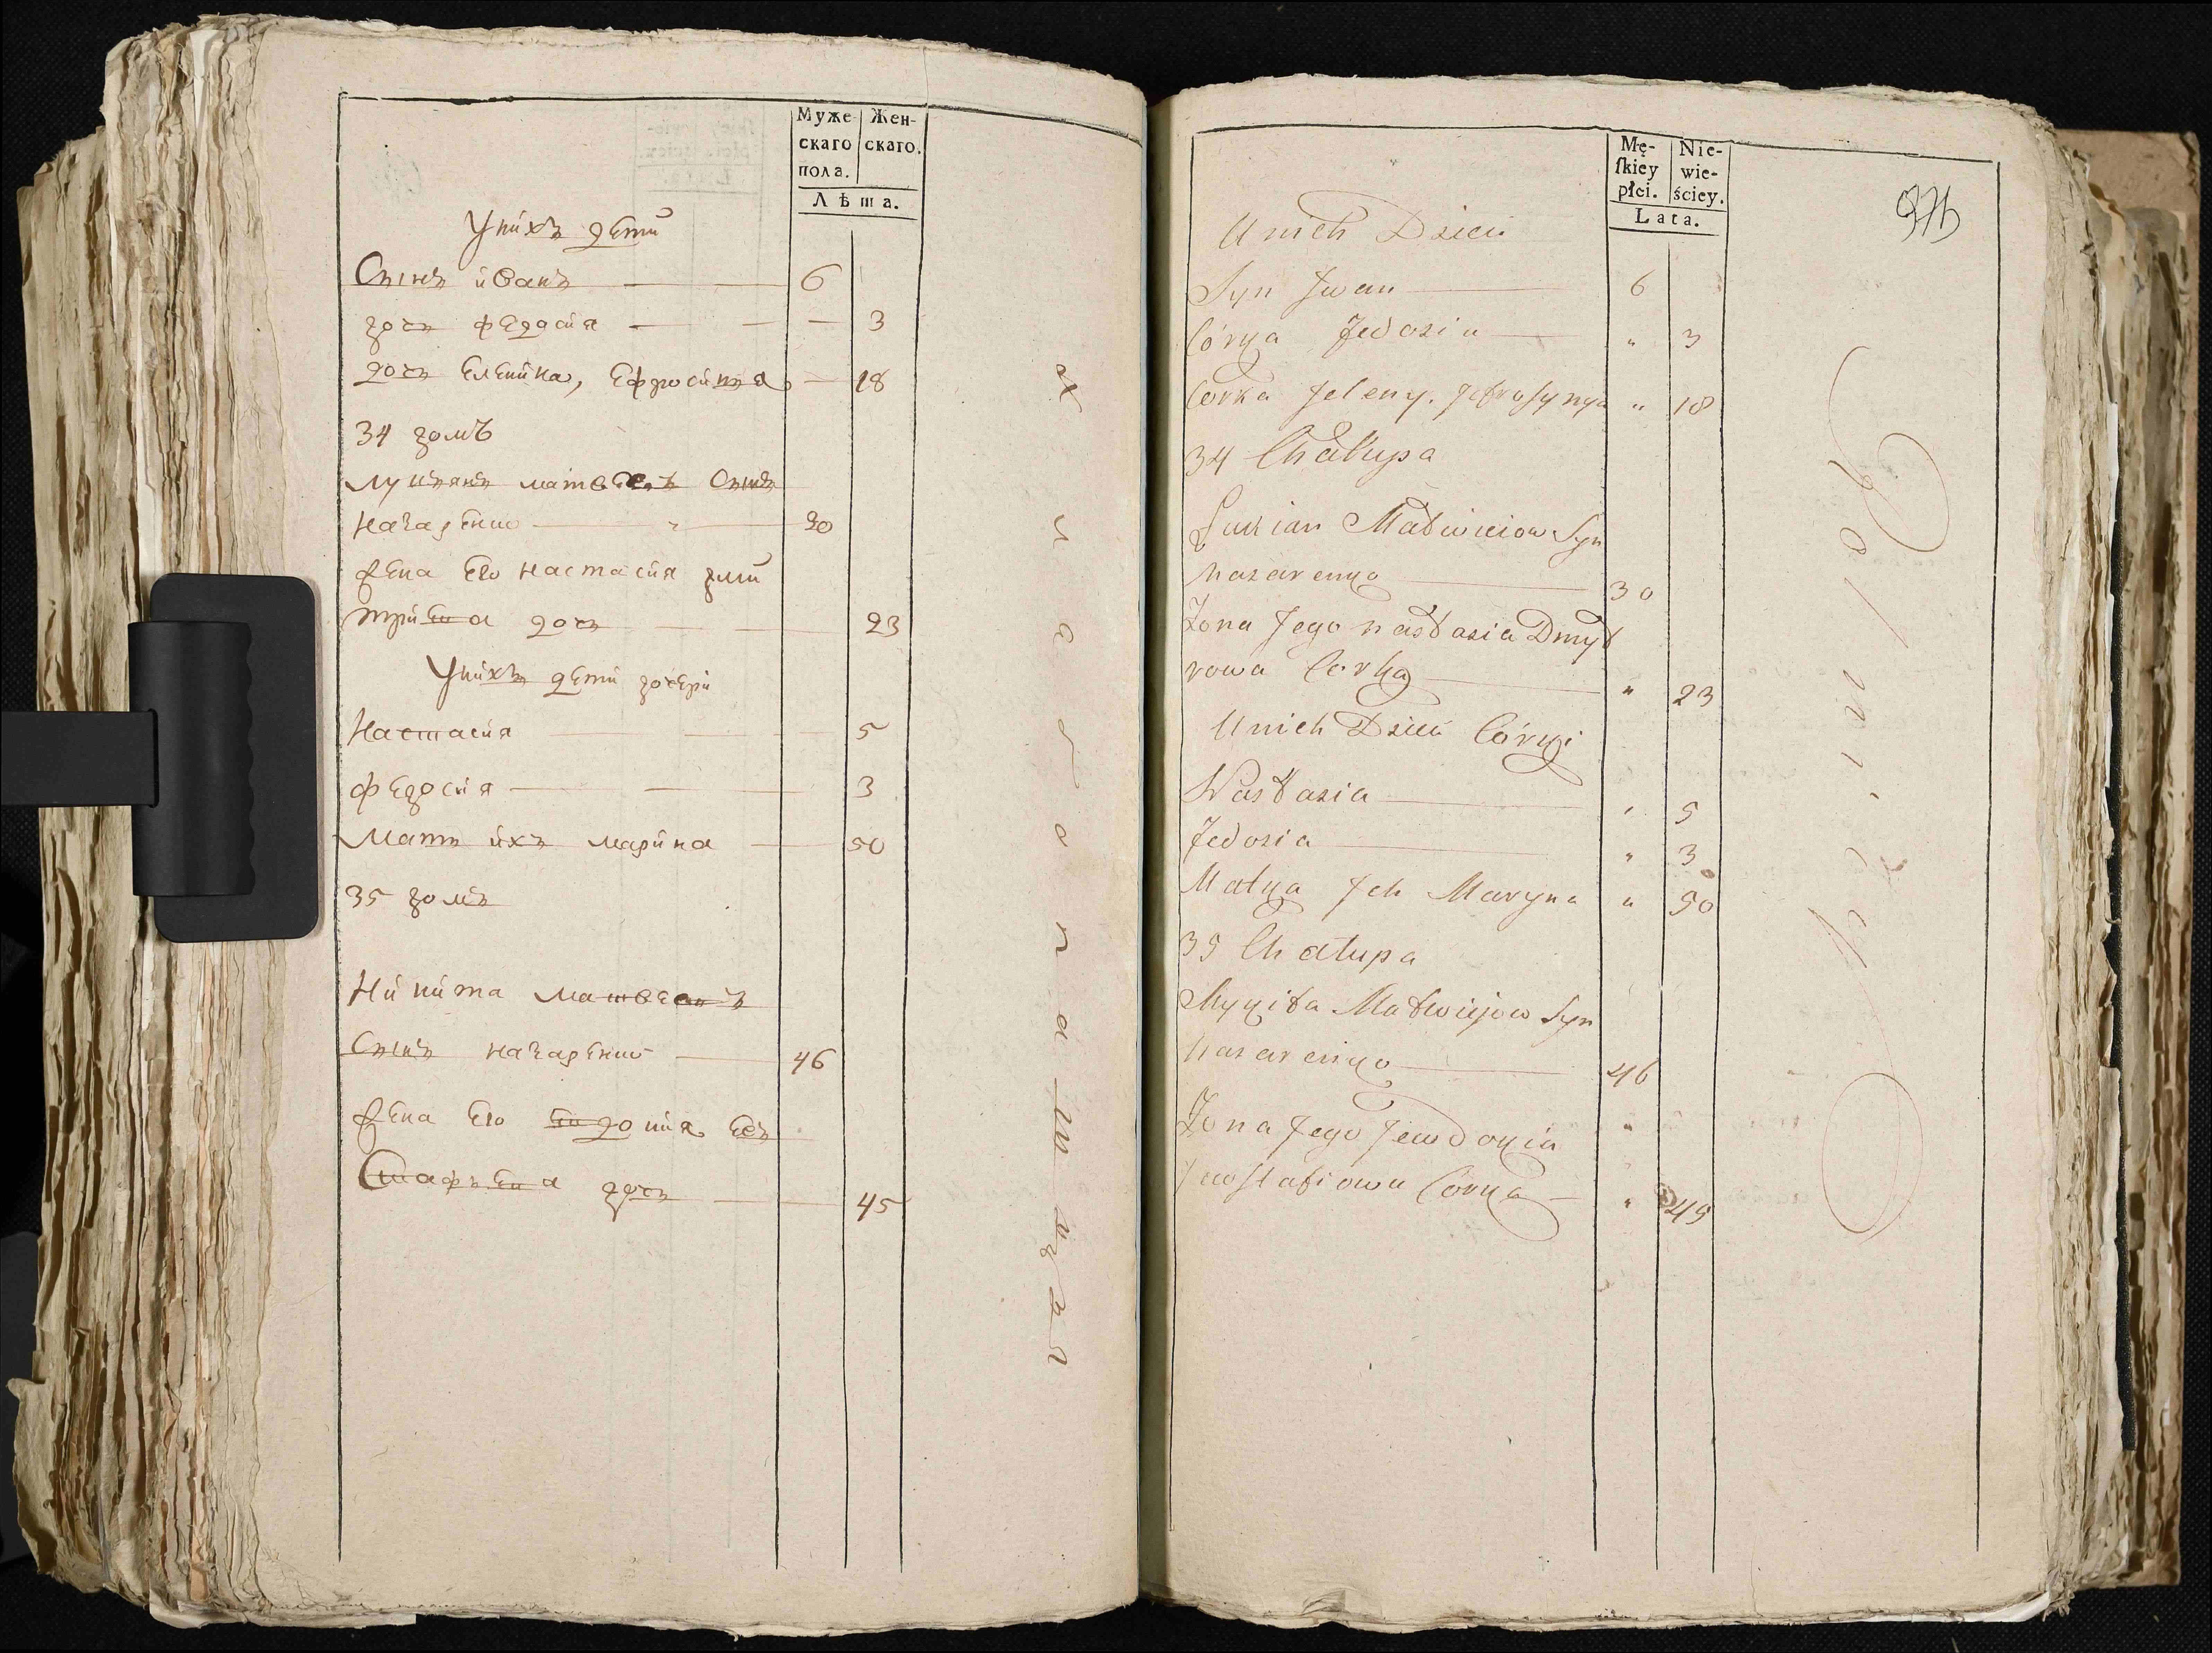 Муже-
скаго
пола.
Жен-
скаго.
Лѣта.
Унихъ дети
Сынъ иванъ 6
дочь федосия 3
дочь Еленина, Ефросиния 18
34 домъ
лукиянъ матвеевъ Сынъ
назаренко 30
жена Его настасия дми
триева дочь 23
Унихъ дети дочери
Настасия 5
федосия 3
Мать ихъ марина 50
35 домъ
Никита матвеевъ
Сынъ назаренко 46
жена Его Евдокия Ев
стафьева дочь 45
Mę-
ſkiey
płci.
Nie-
wie-
ściey.
Lata.
U nich Dzieci
Syn Jwan 6
Córka Fedosia " 3
Córka Jeleny. Jefrosynya " 18
34 Chałupa
Łukian Matwieiow Syn
nazarenko 30
Żona Jego nastasia Dmyt
rowa Corka " 23
U nich Dzieci Córki
Nastasia " 5
Fedosia " 3
Matka Jch Maryna " 50
35 Chałupa
Mykita Matwiejow Syn
nazarenko 46
Żona Jego Jewdokia "
Jewstafiowa Córka " 45